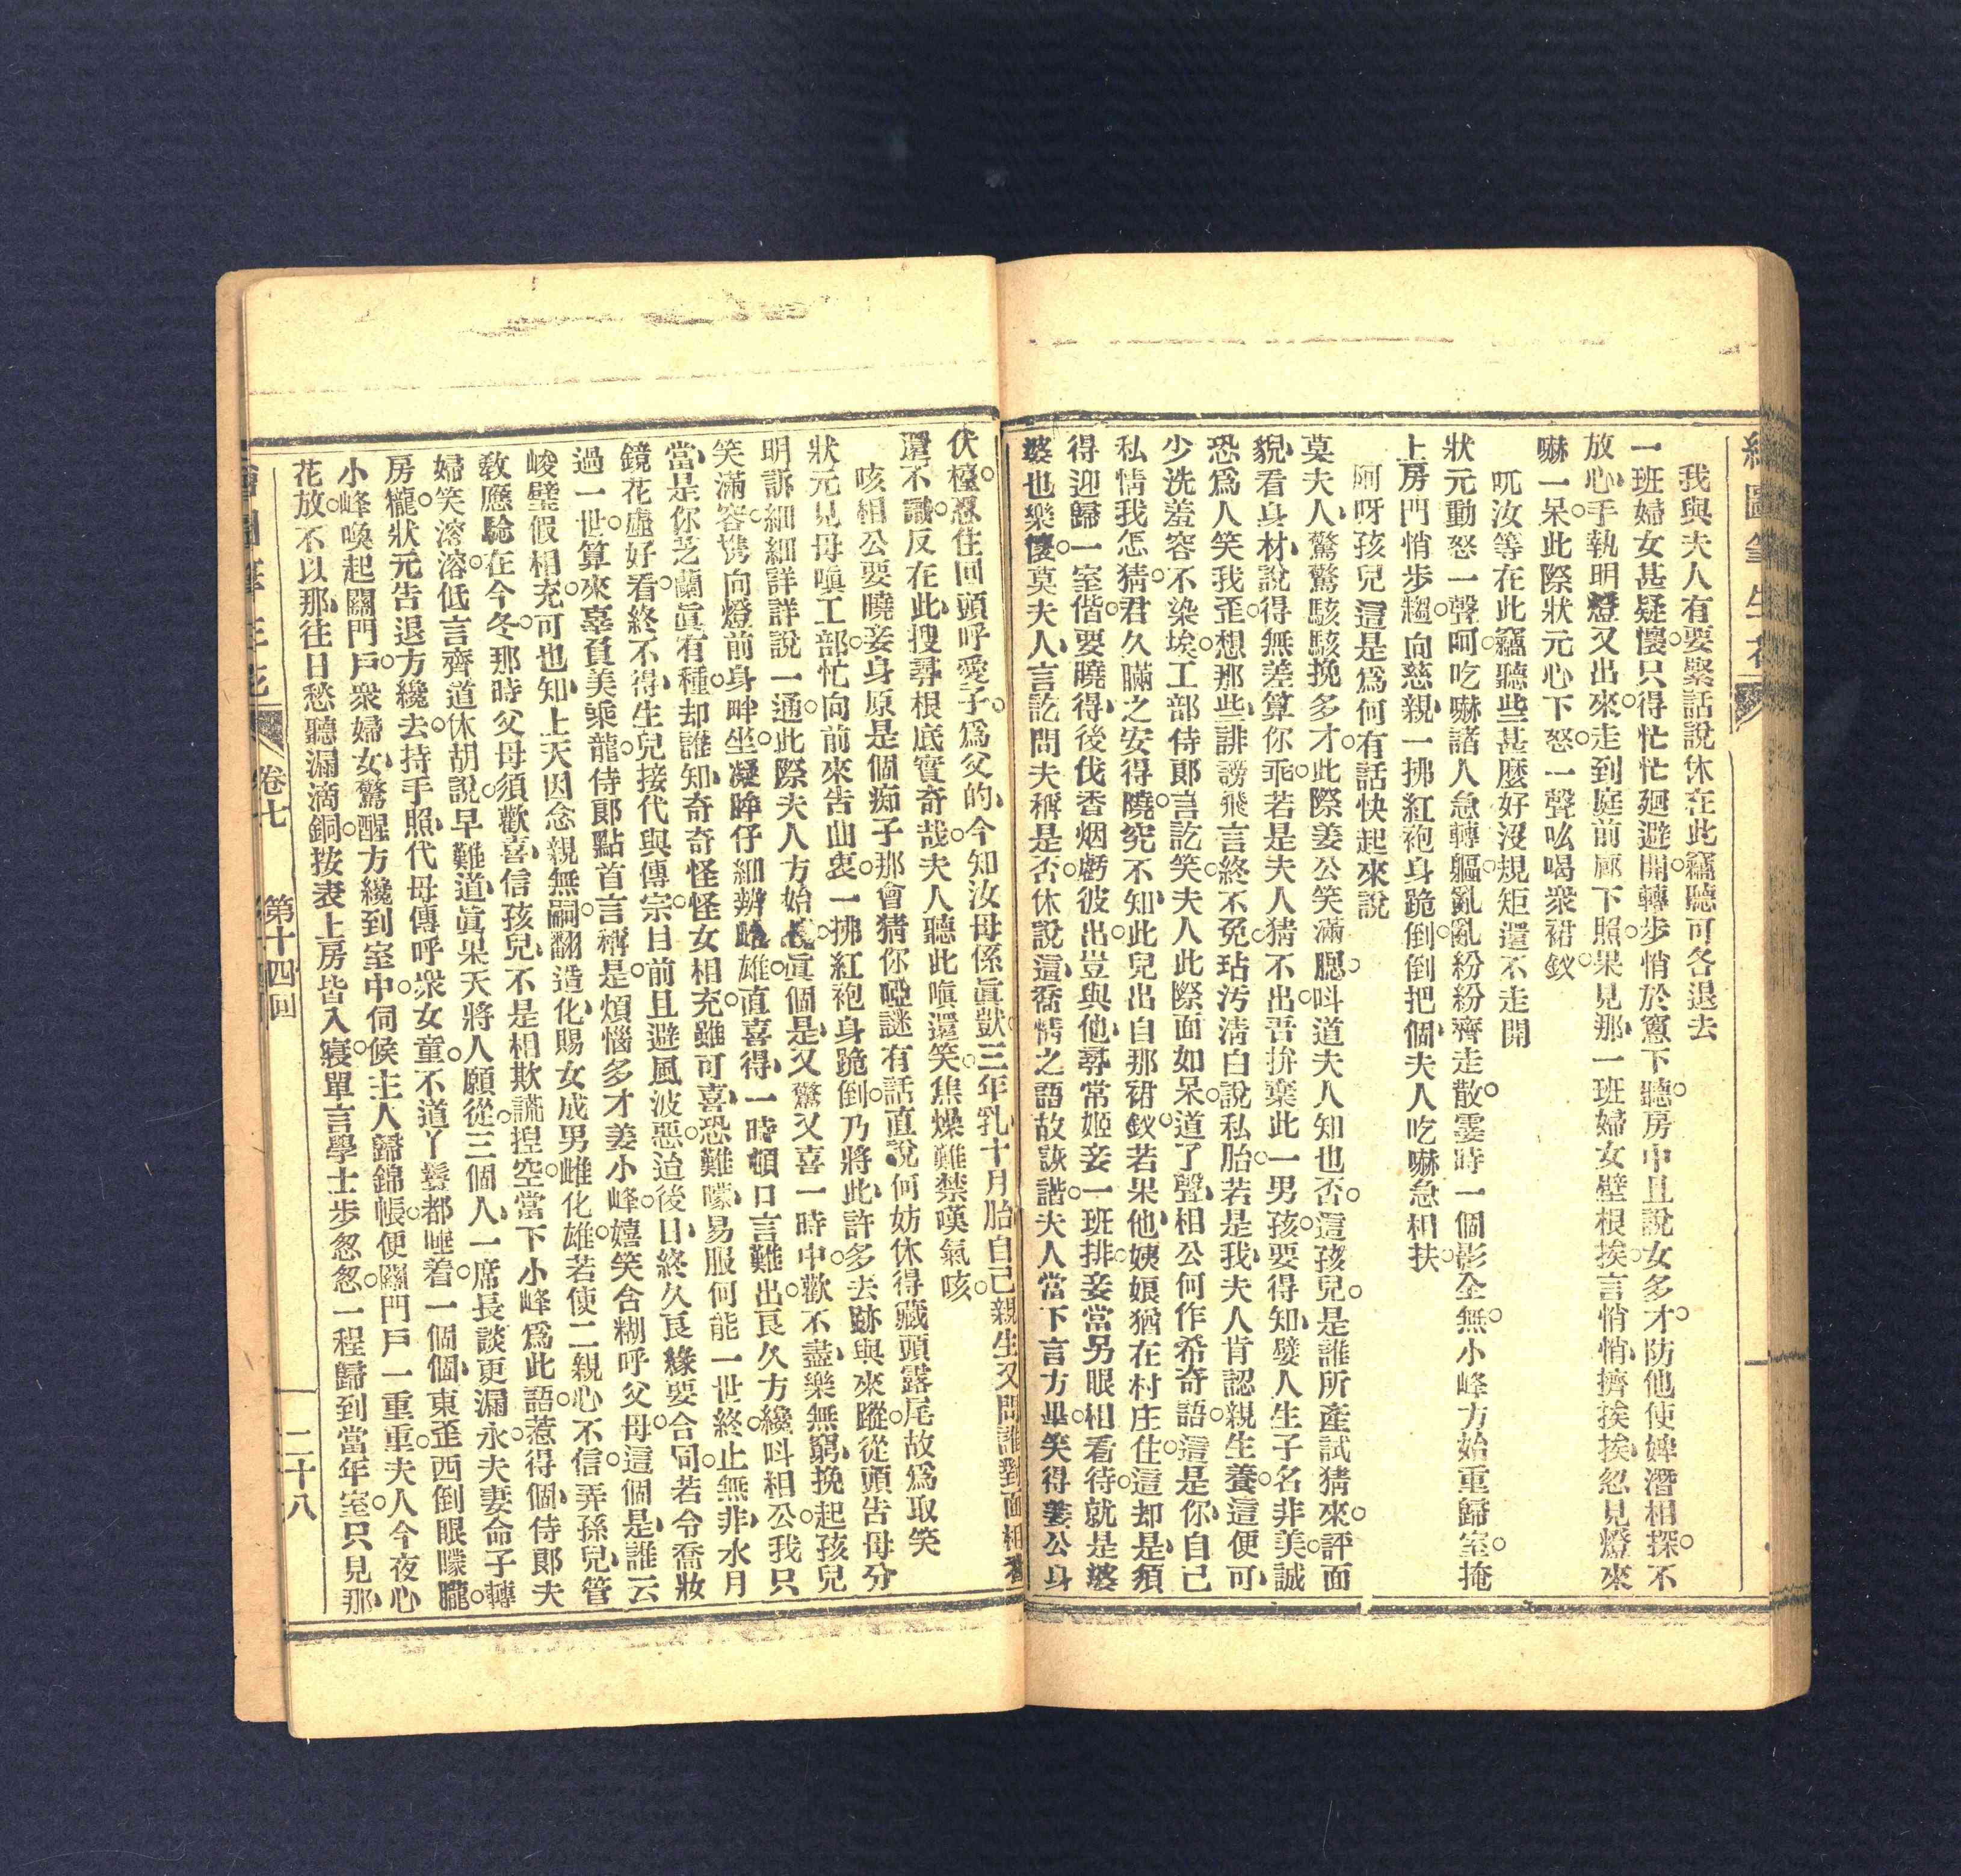 繪圖筆生花
我與夫人有要緊話說休在此竊聽可各退去
一班婦女甚疑懷只得忙忙廻避開轉步悄於窻下聽房中且說女多才防他使婢潛相探不
放心手執明燈又出來走到庭前廊下照果見那一班婦女壁根挨言悄悄擠挨挨忽見燈來
嚇一呆此際狀元心下怒一聲吆喝衆裙釵
呒汝等在此竊聽些甚麽好沒規矩還不走開
狀元動怒一聲呵吃嚇諸人急轉軀亂亂紛紛齊走散霎時一個影全無小峰方始重歸室掩
上房門悄步趨向慈親一拂紅袍身跪倒倒把個夫人吃嚇急相扶
阿呀孩兒這是爲何有話快起來說
莫夫人驚驚駭駭挽多才此際姜公笑滿腮呌道夫人知也否這孩兒是誰所產試猜來評面
貌看身材說得無差算你乖若是夫人猜不出吾拚棄此一男孩要得知嬖人生子名非美誠
恐爲人笑我歪想那些誹謗飛言終不免玷汚淸白說私胎若是我夫人肯認親生養這便可
少洗羞容不染埃工部侍郎言訖笑夫人此際面如呆道了聲相公何作希奇語這是你自己
私情我怎猜君久瞞之安得曉究不知此兒出自那裙釵若果他姨娘猶在村庄住這却是須
得迎歸一室偕要曉得後伐香烟虧彼出豈與他尋常姬妾一班排妾當另眼相看待就是婆
婆也樂懷莫夫人言訖問夫稱是否休說這喬情之語故詼諧夫人當下言方畢笑得姜公身
伏檯忍住回頭呼愛子爲父的今知汝母係眞獃三年乳十月胎自己親生又問誰對面相看
還不識反在此搜尋根底實奇哉夫人聽此嗔還笑焦燥難禁嘆氣咳
咳相公要曉妾身原是個痴子那會猜你啞謎有話直說何妨休得藏頭露尾故爲取笑
狀元見母嗔工部忙向前來告曲衷一拂紅袍身跪倒乃將此許多去跡與來蹤從頭告母分
明訴細細詳詳說一通此際夫人方始眞個是又驚又喜一時中歡不盡樂無窮挽起孩兒
笑滿容携向燈前身畔坐凝眸仔細辨雌雄直喜得一時頓口言難出良久方纔呌相公我只
當是你芝蘭眞有種却誰知奇奇怪怪女相充雖可喜恐難矇易服何能一世終止無非水月
鏡花虛好看終不得生兒接代與傳宗目前且避風波惡迨後日終久良緣要合同若令喬妝
過一世算來辜負美乘龍侍郎點首言稱是煩惱多才姜小峰嬉笑含糊呼父母這個是誰云
峻璧假相充可也知上天因念親無嗣翻造化賜女成男雌化雄若使二親心不信弄孫兒管
敎應驗在今冬那時父母須歡喜信孩兒不是相欺謊揑空當下小峰爲此語惹得個侍郎夫
婦笑溶溶低言齊道休胡說早難道眞果天將人願從三個人一席長談更漏永夫妻命子轉
房櫳狀元告退方纔去持手照代母傳呼衆女童不道丫鬟都睡着一個個東歪西倒眼矇朧
小峰喚起關門戶衆婦女驚醒方纔到室中伺候主人歸錦帳便關門戶一重重夫人今夜心
花放不以那往日愁聽漏滴銅按表上房皆入寢單言學士步忽忽一程歸到當年室只見那
繪圖筆生花 卷七 第十四回 二十八